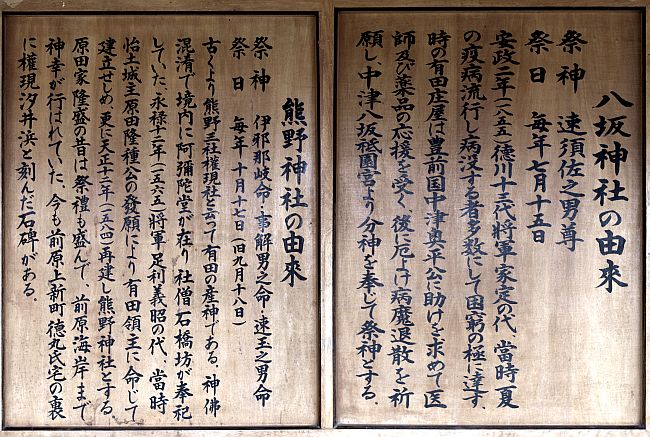 八坂神社の由來
祭神　速須佐之男尊
祭日　毎年七月十五日
安政二年(一八五五)徳川十三代將軍家定の代、當時夏
の疫病流行し病没する者多数にして困窮の極に達す、
時の有田庄屋は豊前国中津奥平公に助けを求めて医
師及び薬品の応援を受く 後に厄よけ病魔退散を祈
願し、中津八坂祗園宮より分神を奉じて祭神とする。
熊野神社の由來
祭神　伊邪那岐命・事解男之命・速玉之男命
祭日　毎年 十月十七日(旧九月十八日)
古くより熊野三社權現社と云つて有田の産神である。神佛
混淆で境内に阿彌陀堂が在り 社僧石橋坊が奉祀
していた、永禄十二年(一五六五)將軍足利義昭の代、當時
怡土城主原田隆種公の發願により有田領主に命じて
建立せしめ 更に天正十二年(一五八四)再建し熊野神社とする。
原田家隆盛の昔は祭禮も盛んで、前原海岸まで
神幸が行はれていた、今も前原上新町徳丸氏宅の裏
に權現汐井浜と刻んだ石碑がある。